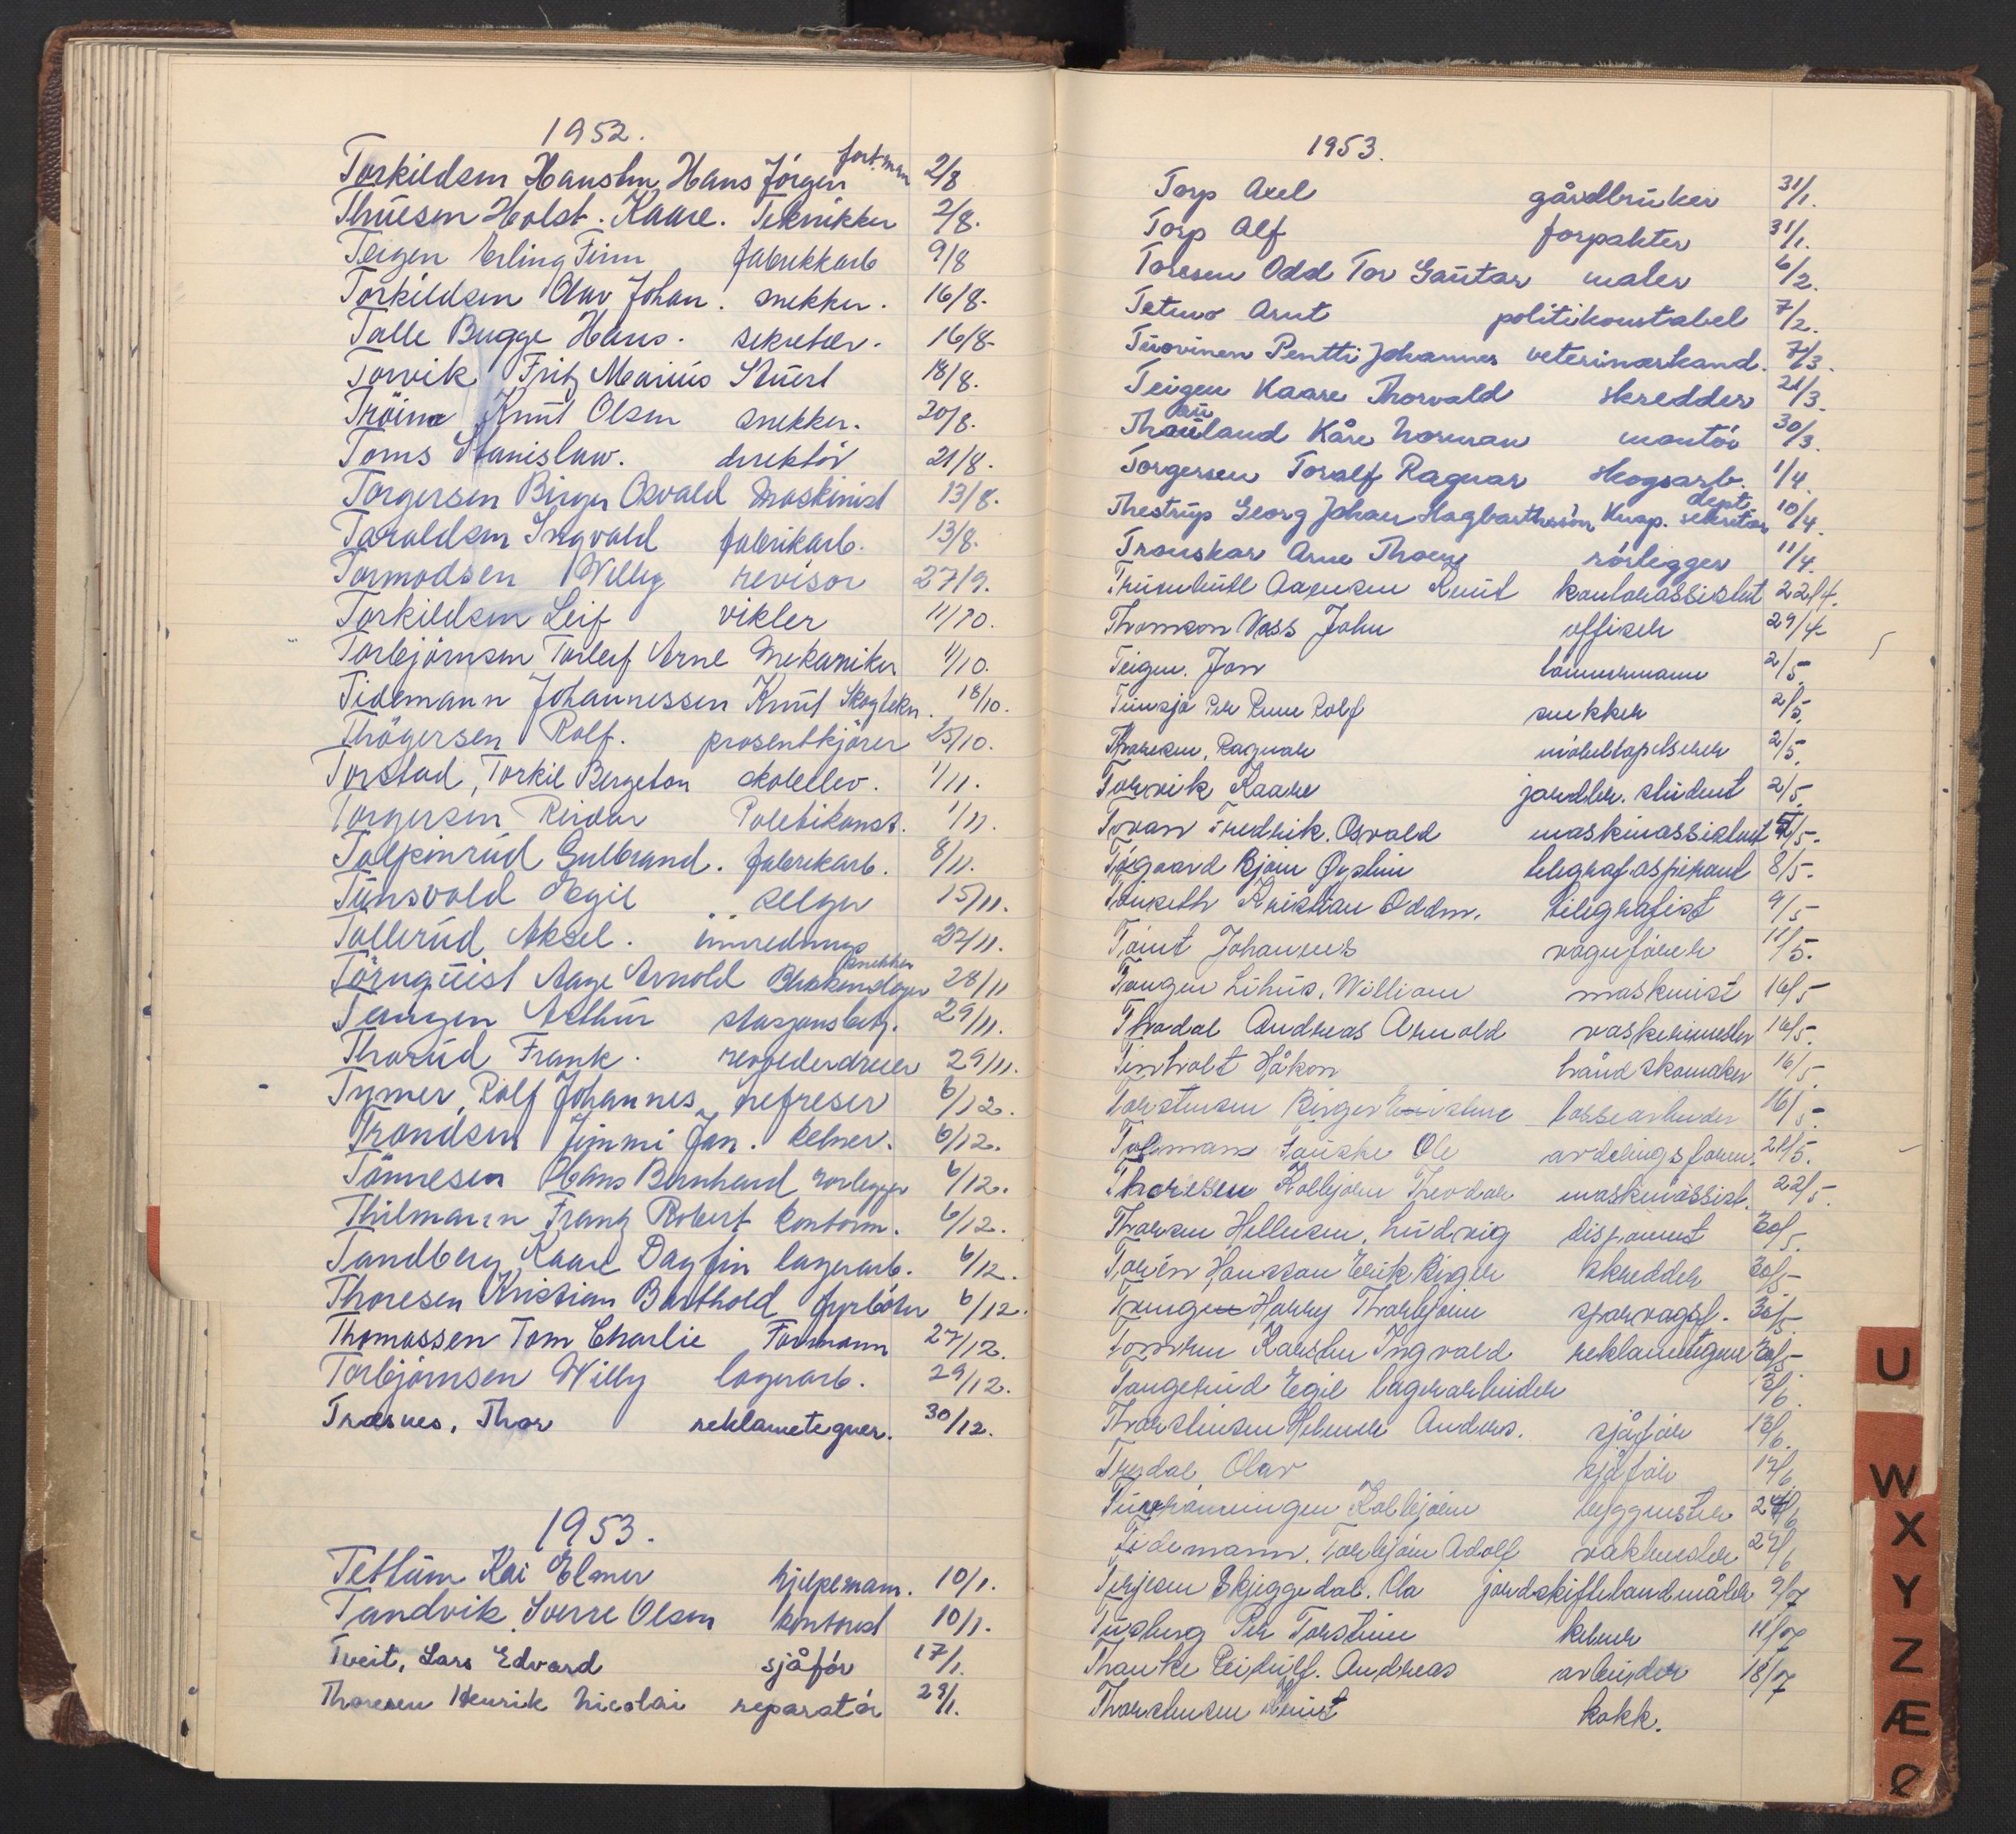 1952.
Torkildsen Hauslin, Hans Jörgen forr.mann 2/8
Thuesen Holst. Kaare. Teknikker 2/8.
Teigen Erling Finn fabrikkarb 9/8
Torkildsen Olav Johan. snekker. 16/8.
Talle Bugge Hans. sekretær. 16/8
Torvik Fritz Marius Stuert 18/8.
Tröim Knut Olsen snekker. 20/8.
Toms Stanislaw. direktör 21/8.
Torgersen Birger Osvald Maskinist 13/8.
Taraldsen Ingvald fabrikarb. 13/8.
Tormodsen Willy revisor 27/9.
Torkildsen Leif vikler 11/10.
Torbjörnsen Torleif Arne Mekaniker 11/10.
Tidemann Johannessen Knut Skogtekn. 18/10.
Thögersen Rolf. prosentkjörer 25/10.
Torstad, Torkil Bergeton skoleelev. 1/11.
Torgersen Reidar Politikonst. 1/11.
Talpinrud Gulbrand. fabrikarb. 8/11.
Tunsvold Egil selger 15/11.
Tollerud Aksel. innrednings snekker 22/11.
Törnquist Aage Arnold 28/11
Teungen Arthur stasjonsbetj. 29/11.
Thorud Frank. revolverdreier 29/11.
Tymer, Rolf Johannes hefreser 6/12.
Trondsen Jimmi Jan. kelner. 6/12.
Tönnesen Hans Bernhard rörlegger 6/12.
Thilmann Frantz Robert kontorm. 6/12.
Tandberg Kaare Dagfin lagerarb. 6/12.
Thoresen Kristian Barthold fyrböter 6/12.
Thomassen Tom Charlie Formann 27/12.
Torbjörnsen Willy lagerarb. 29/12.
Træsnes, Thor reklametegner. 30/12.
1953.
Tettum Kai Elmer hjelpemann. 10/1.
Tandvik Sverre Olsen kontorist 10/1.
Tveit, Lars Edvard sjåför 17/1.
Thoresen Henrik Nicolai reparatör 29/1.
1953.
Torp Axel gårdbruker 31/1.
Torp Alf forpakter 31/1.
Toresen Odd Tor Gautar maler 6/2.
Tetmo Arnt politikonstabel 7/2.
Tuovinen Pentti Johannes veterinærkand. 7/3.
Teigen Kaare Thorvald skredder 21/3.
Thauland Kåre Norman montör 30/3.
au
Torgersen Toralf Ragnar skogsarb. 1/4.
Thestrup Georg Johan Hagbarthssön Knap. dept. sekretær 10/4.
Tronskar Arne rörlegger 11/4.
Trumbull Aarensen Knut kontorassistent 22/4.
Thomson Voss John offiser 29/4
Teigen. Jon lönnsmann 2/5.
Timsjö Per Rune Rolf snekker 2/5.
Thoresen, Ragnar möbeltapetserer 2/5.
Torvik Kaare jordbr. student 2/5.
Tovan Fredrik. Osvald maskinassistent 5/5.
Törgaard Björn Øystein telegraf.aspirant 8/5.
Kristian Oddm. telegrafist 9/5
Töint Johannes vognförer 11/5.
Tangen Linus. William maskinist 16/5
Thodal Andreas Arnold vaskerimester 16/5.
Tinholt Håkon håndskomaker 16/5.
Torstensen Birger lossearbeider 16/5.
Talman Fauske Ole avdelingsform. 21/5.
Thoresen Kolbjörn Theodor maskinassist. 22/5.
Thorsen Hellesen, Ludvig disponent 30/5.
Torén Hansson Erik Birger skredder 30/5
Harry Thorbjörn sporvogsf. 30/5.
Karsten Ingvald reklametegner 30/5
Tangerud Egil lagerarbeider 3/6.
Thorstensen Helmer Anders. sjåför 13/6.
Tresdal Olav sjåför 17/6.
Kolbjörn byggmester 24/6
Tidemann. Torbjörn Adolf vaktmester 27/6
Terjesen Skjeggedal. Ola jordskiftelandmåler 9/7
Tusberg Per Torstein kelner 11/7
Thanke Reidulf. Andreas arbeider 18/7
Thorstensen Knut kokk.
U
W
X
Y
Z
Æ
Ø